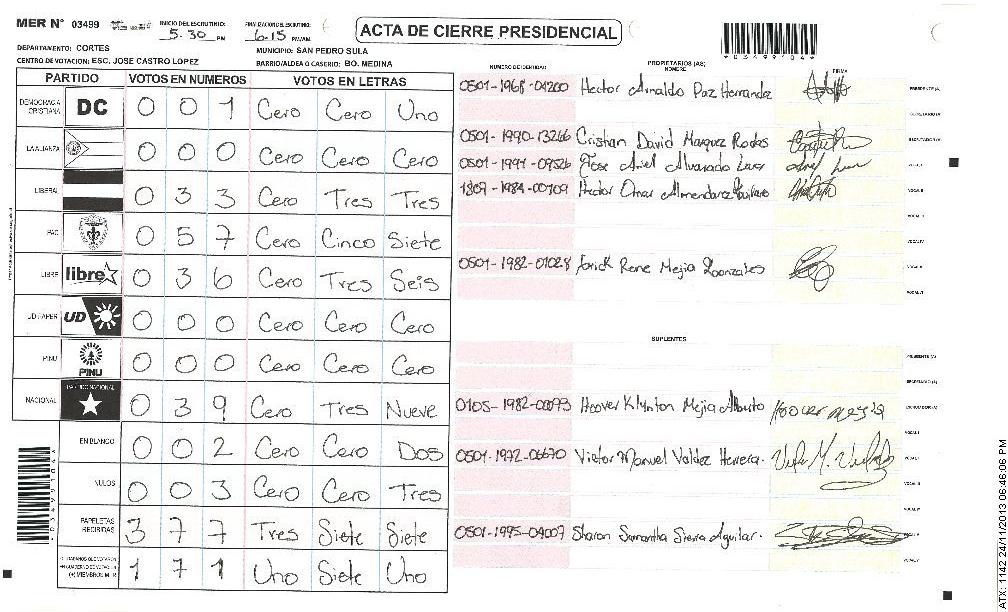 MER N° 03499
INICIO DEL ESCRUTINIO: 5.30 PM
FINALIZACION ESCRUTINIO: 6.15 PM/AM
ACTA DE CIERRE PRESIDENCIAL
*03499104*
DEPARTAMENTO: CORTES
MUNICIPIO: SAN PEDRO SULA
CENTRO DE VOTACION: ESC. JOSE CASTRO LOPEZ
BARRIO/ALDEA O CASERIO: BO. MEDINA
PARTIDO VOTOS EN NUMEROS VOTOS EN LETRAS
DEMOCRACIA CRISTIANA DC 0 0 1 Cero Cero Uno
LA ALIANZA 0 0 0 Cero Cero Cero
LIBERAL 0 3 3 Cero Tres Tres
PAC 0 5 7 Cero Cinco Siete
LIBRE libre 0 3 6 Cero Tres Seis
UD FAPER UD 0 0 0 Cero Cero Cero
PINU PINU 0 0 0 Cero Cero Cero
NACIONAL PARTIDO NACIONAL 0 3 9 Cero Tres Nueve
EN BLANCO 0 0 2 Cero Cero Dos
NULOS 0 0 3 Cero Cero Tres
PAPELETAS RECIBIDAS 3 7 7 Tres Siete Siete
CIUDADANOS QUE VOTARON EN CUADERNO DE VOTACION (+) MIEMBROS MER 1 7 1 Uno Siete Uno
NUMERO DE IDENTIDAD
PROPIETARIOS (AS)
NOMBRE
FIRMA
0501-1968-04200 Hector Arnaldo Paz Hernandez PRESIDENTE (A)
SECRETARIO (A)
0501-1990-13266 Cristhan David Marquez Rodas
0501-1991-09526 Jose Ariel Alvarado
1807-1984-00709 Hector Omar Almendarez VOCAL II
VOCAL III
VOCAL IV
0501-1982-01028 Rene Mejia Goonzales VOCAL V
VOCAL VI
SUPLENTES
PRESIDENTE (A)
SECRETARIO (A)
0105-1982-00093 Hoover Klynton Mejia ESCRUTADOR (A)
VOCAL I
0501-1972-06670 Victor Manuel Valdez Herrera.
VOCAL III
VOCAL IV
0501-1995-04007 Sharon Samantha Sierra Aguilar.
VOCAL VI
*03499104*
ATX: 1142 24/11/2013 06:46:06 PM